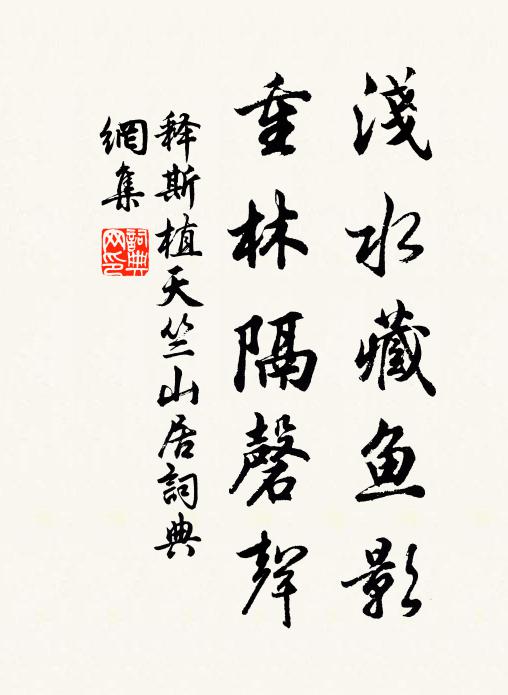 淺水藏鱼影
重林隔磬聲
释斯植天竺山居詞典
網集
詞典
网印